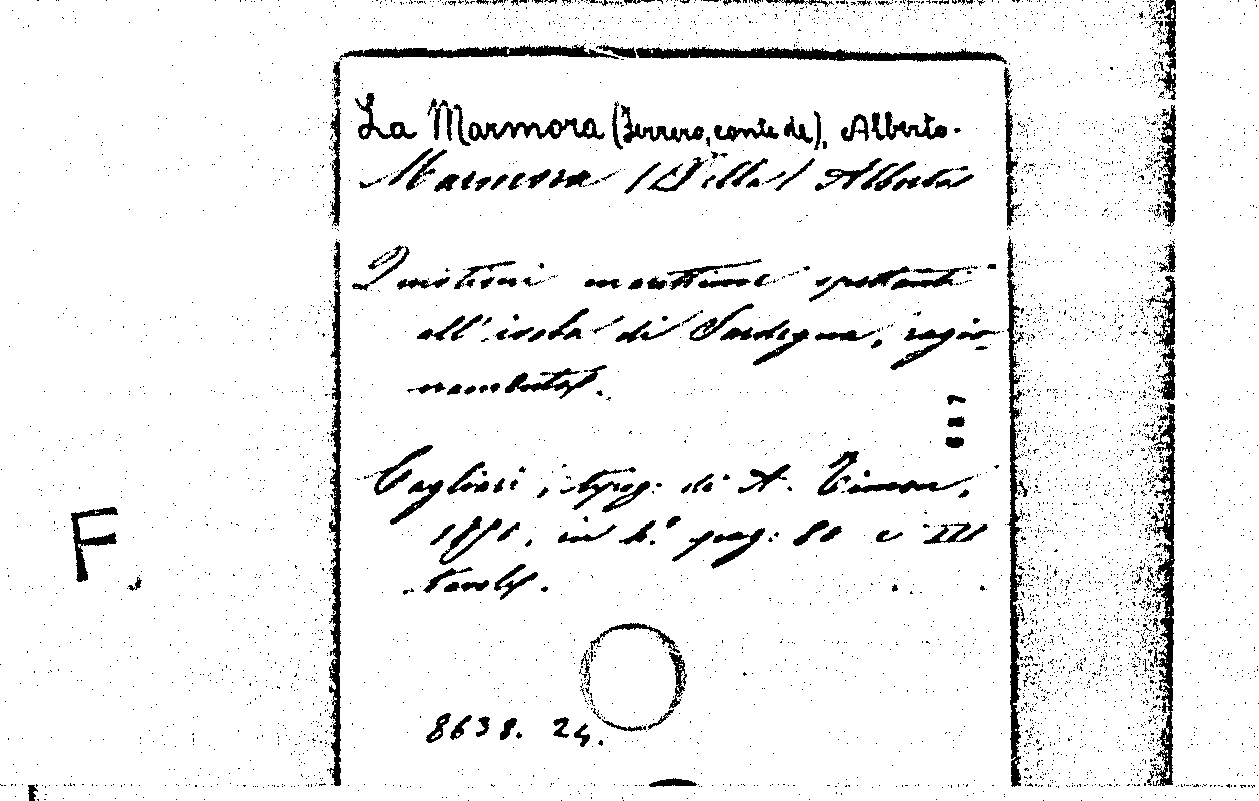 La Marmora (Ferrero, conte de), Alberto.
Marmora (Della) Alberto
Quistioni marittime spettanti
all'isola di Sardegna, ragio-
namento.
887
Cagliari, tipog. di A. Timon,
in 4.° pag: 80 e III
tavole.
F
8638. 24.